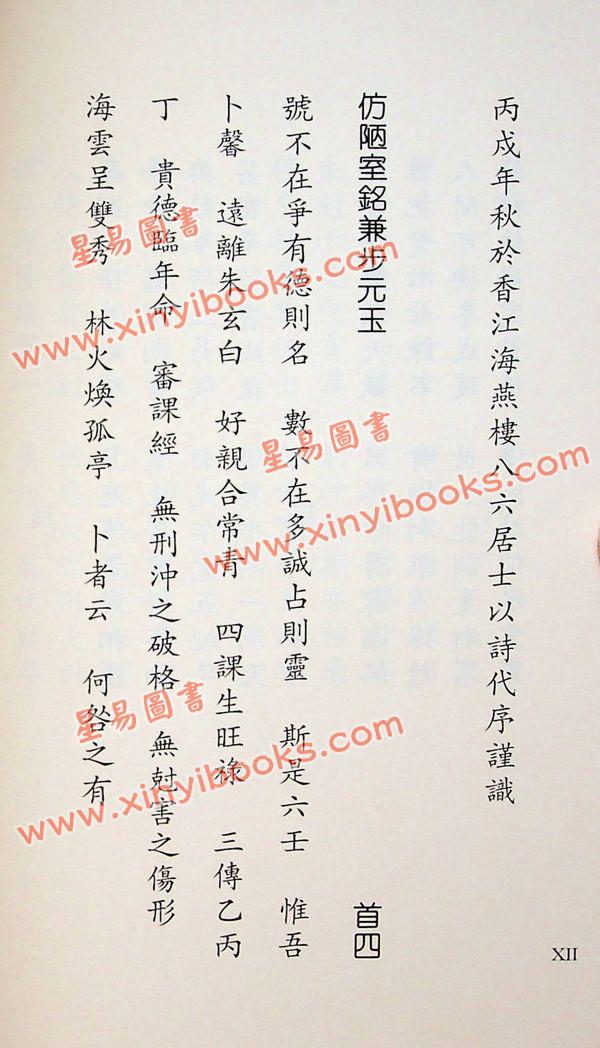 丙戌年秋於香江海燕樓八六居士以詩代序謹識
仿陋室銘兼步元玉 首四
號不在爭有德則名 數不在多誠占則靈 斯是六壬 惟吾
卜馨 遠離朱玄白 好親合常青 四課生旺祿 三傳乙丙
丁 貴德臨年命 審課經 無刑沖之破格 無尅害之傷形
海雲呈雙秀 林火煥孤亭 卜者云 何咎之有
XII
星易圖書
www.xinyibooks.com
星易圖書
www.xinyibooks.com
星易圖書
www.xinyibooks.com